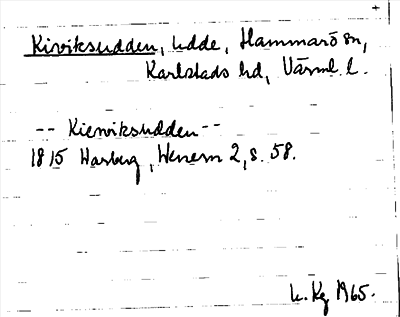 Kirviksudden, udde, Hammarö sn,
Karlstads hd, Värml. l.
-- Kierviksudden --
1815 Warberg, Wenern 2, s. 58.
1965.